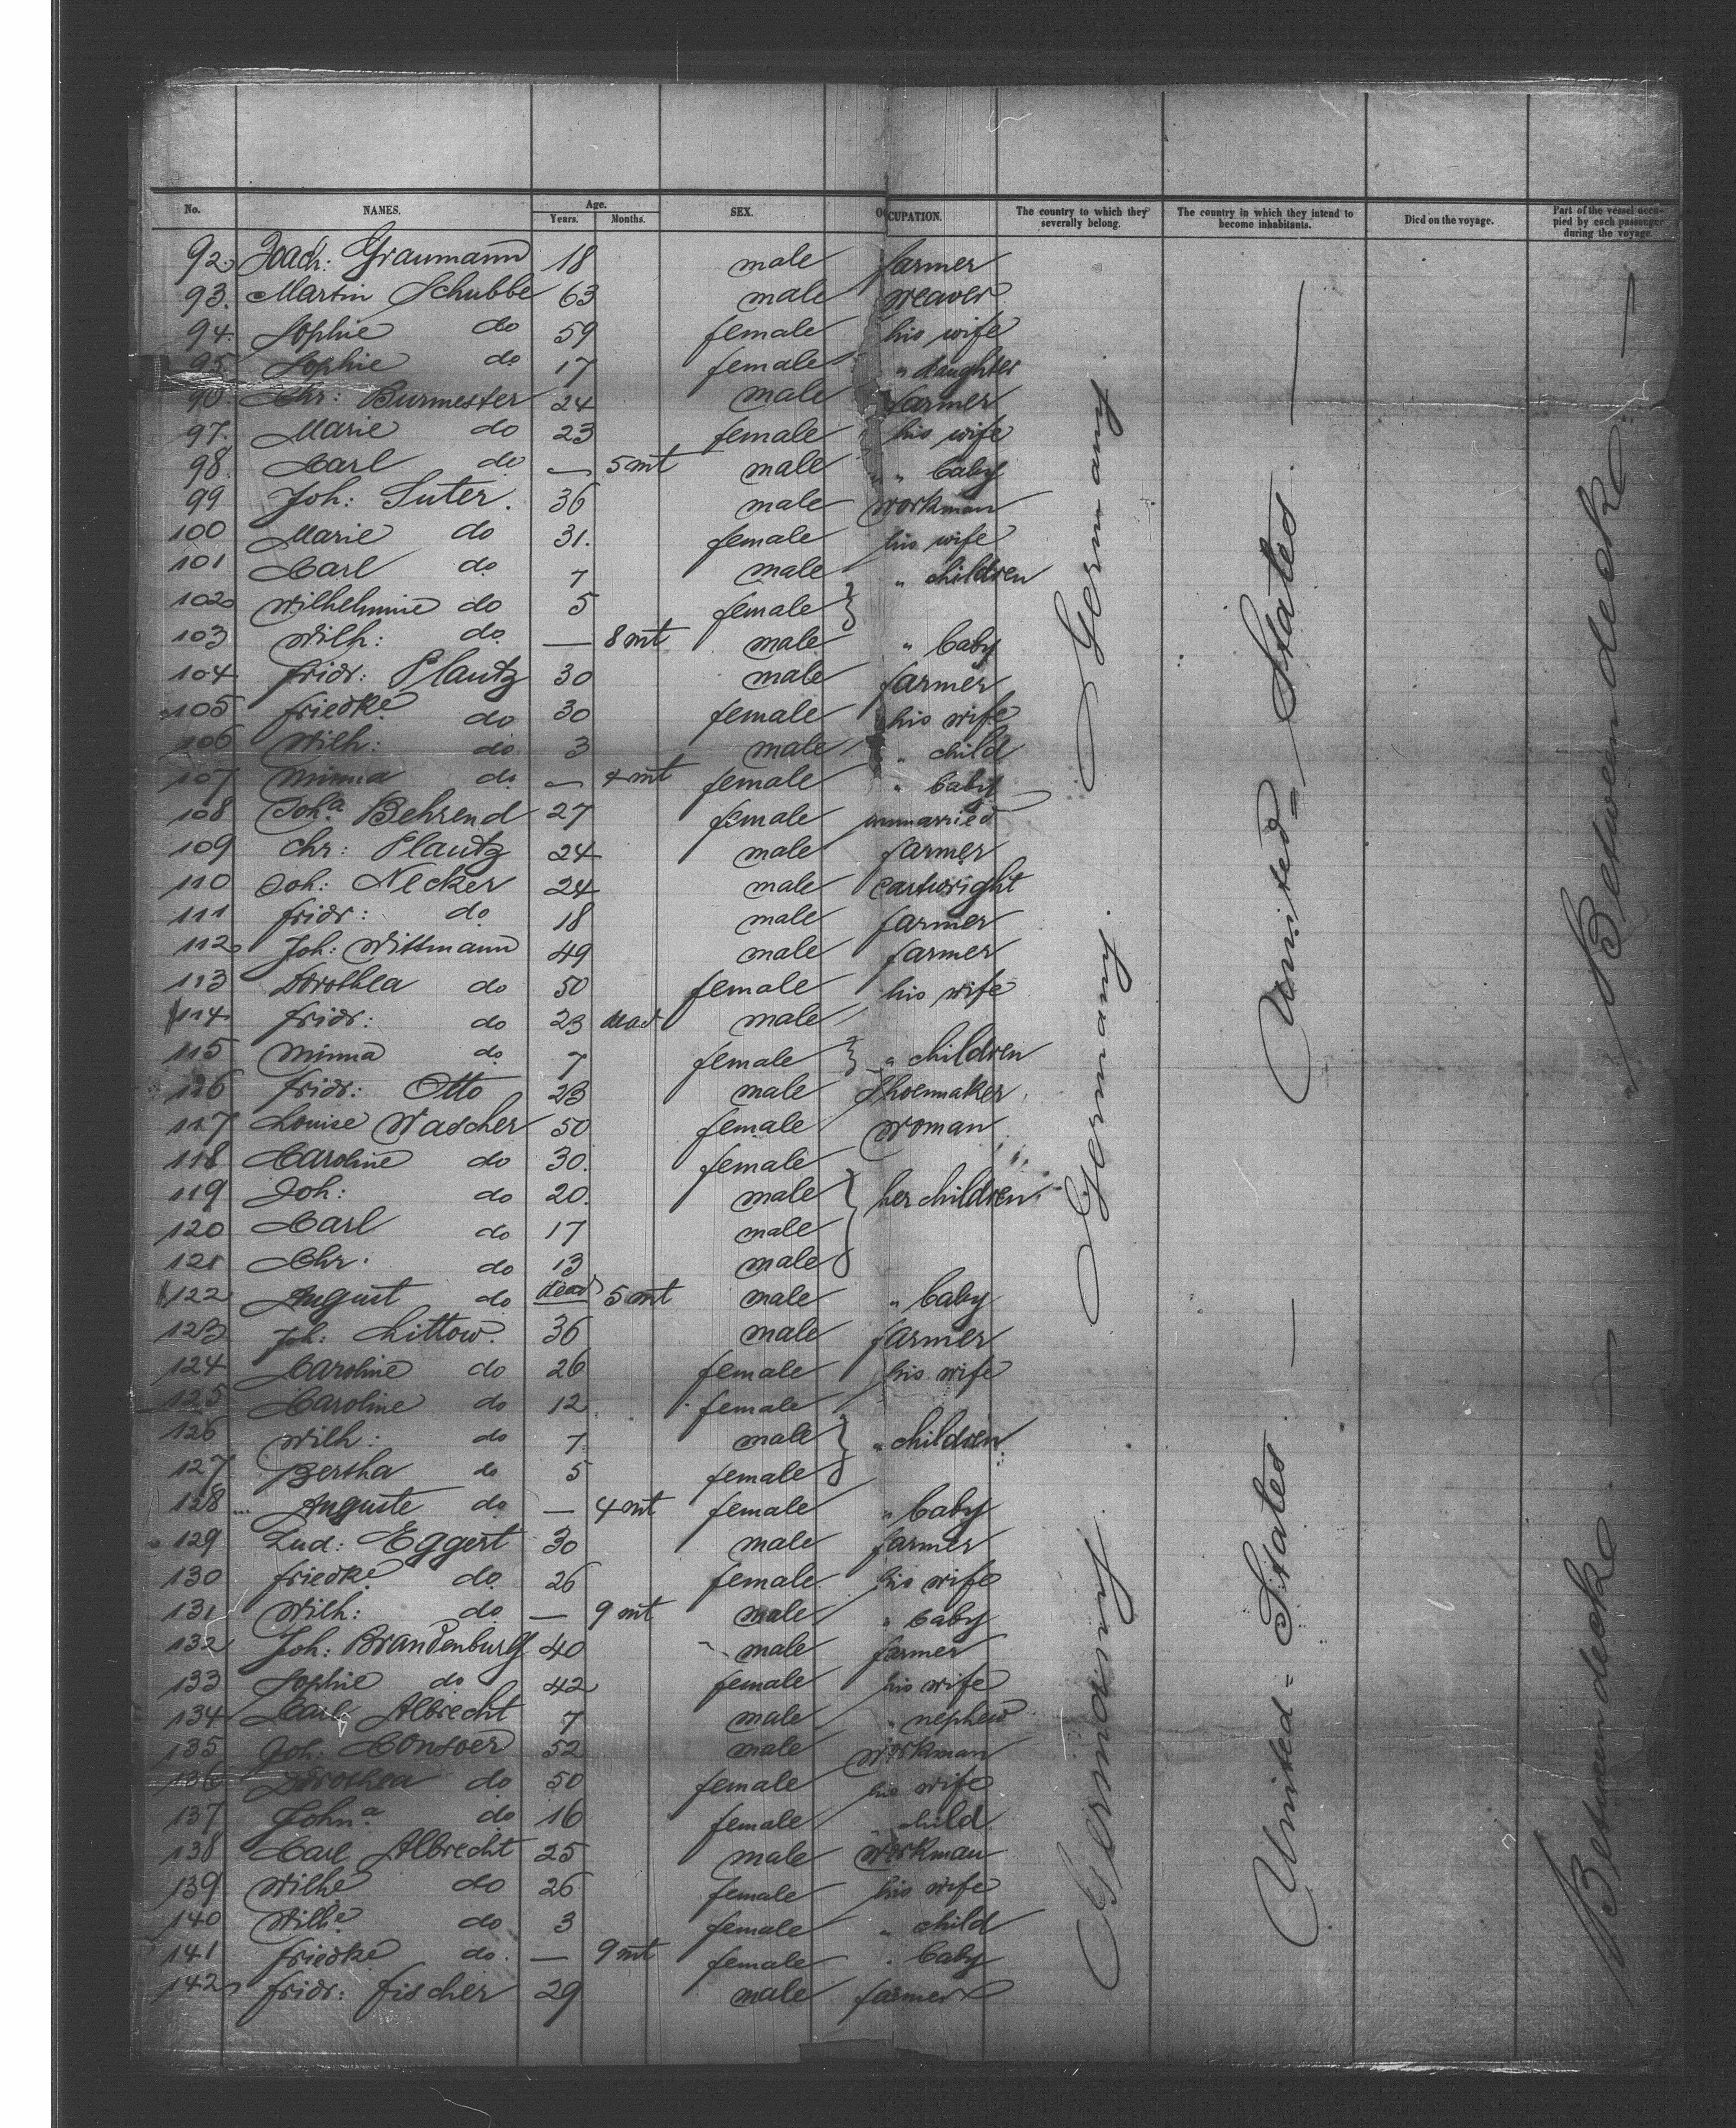 No. NAMES. Age. Years. Months. SEX. OCCUPATION. The country to which they severally belong. The country in which they intend to become inhabitants. Died on the voyage. Part of the vessel occupied by each passenger during the voyage.
92. Joach: Graumann 18 male farmer
93. Martin Schubbe 63 male weaver
94. Sophie do 59 female his wife
95. Sophie do 17 female " daughter
96. Chr: Burmester 24 male farmer
97. Marie do 23 female his wife
98. Carl do — 5 mt male " " baby
99 Joh: Suter. 36 male workman
100 Marie do 31. female his wife
101 Carl do 7 male " children
102 Wilhelmine do 5 female
103 Wilh: do — 8 mt male " baby
104 Fridr: Plautz 30 male farmer
105 Friedke do 30 female his wife
106 Wilh: do 3 male " child
107 Minna do — 4 mt female " baby
108 Joha Behrend 27 female unmarried
109 Chr: Plautz 24 male farmer
110 Joh: Necker 24 male cartwright
111 Fridr: do 18 male farmer
112 Joh: Wittmann 49 male farmer
113 Dorothea do 50 female his wife
114 Fridr: do 23 dead male
115 Minna do 7 female " children
116 Fridr: Otto 23 male Shoemaker
117 Louise Wascher 50 female woman
118 Caroline do 30. female
119 Joh: do 20. male her children
120 Carl do 17 male
121 Chr: do 13 male
122 August do dead 5 mt male " baby
123 Joh: Littow. 36 male farmer
124 Caroline do 26 female his wife
125 Caroline do 12 female
126 Wilh: do 7 male " children
127 Bertha do 5 female
128 Auguste do — 4 mt female " baby
129 Lud: Eggert 30 male farmer
130 Friedke do 26 female his wife
131 Wilh: do — 9 mt male " baby
132 Joh: Brandenburg 40 male farmer
133 Sophie do 42 female his wife
134 Carl Albrecht 7 male " nephew
135 Joh: Consoer 52 male workman
136 Dorothea do 50 female his wife
137 Johna do 16 female " child
138 Carl Albrecht 25 male workman
139 Wilhe do 26 female his wife
140 Wilhe do 3 female " child
141 Friedke do — 9 mt female " baby
142 Fridr: Fischer 29 male farmer
Germany.
Germany.
Germany
United = States —
United = States —
Betweendecke —
Betweendecke. —